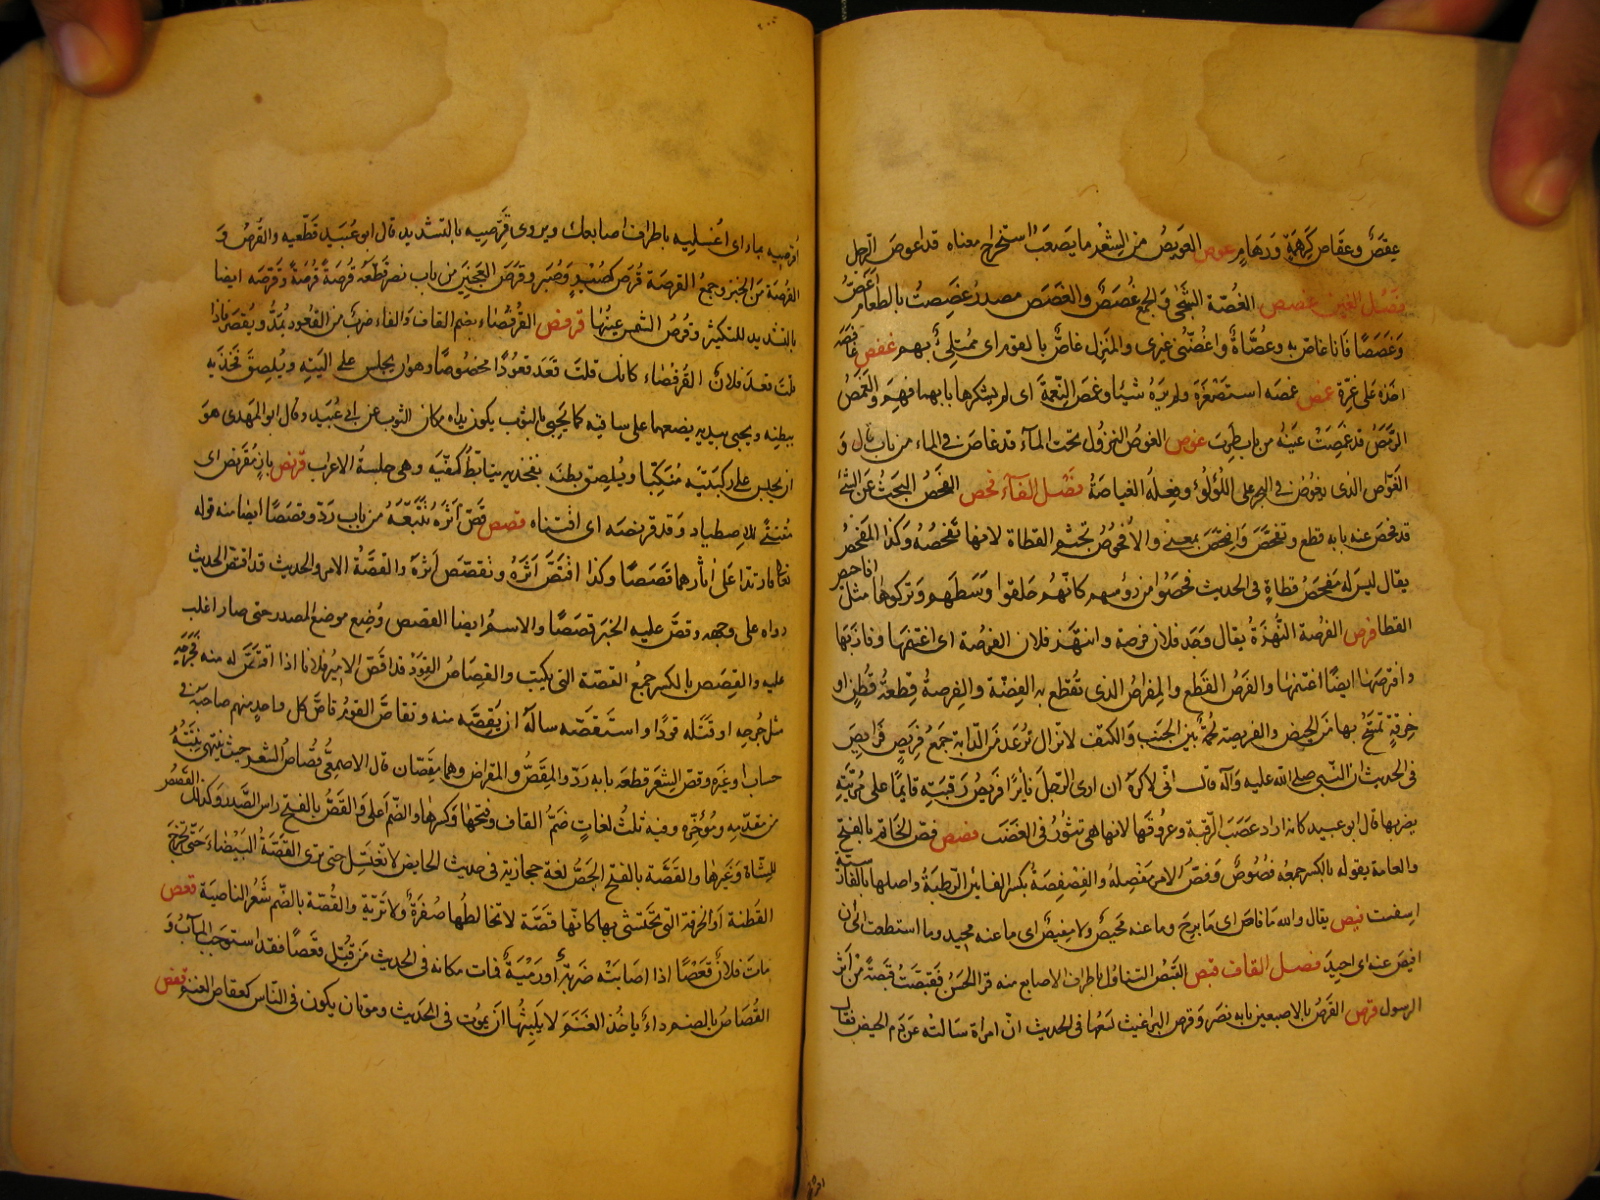 عِقَصٌ وعِقَاص كَرِهْمَةٍ وَرِهَامٍ عوص العَوِيصُ من الشِعْر ما يَصعَبُ استخراج معناه قد اعوصَ الرّجل
فصل الغين غصص الغُصّة الشَجَى وَالجمع غُصَصٌ والغَصَص مصدرُ غَصِصتُ بالطعام أَغَصُّ
وَغَصَصًا فَاَنا غاصٌّ به وغصَّانُ وأَغْصَصْتُه غيرى والمنزل غاصٌّ بالقوم اى مُمْتلِئٌ بهم غفص غَافَصَه
اخذه على غِرَّة غمص غمصَه استصْغَرَه ولم يَرَه شيئا وغمص النِّعمةَ اى لم يشكرها بابهما فهِمَ والغَمَصُ
الرَّمَصُ قد غَمِصَتْ عَينُه من باب طَرِبَ غوص الغوْصُ النزول تحت المآء قد غاصَ فى الماء من باب قال وَ
الغَوّاص الذى يغوص فى البحر على اللُؤلُؤ وفِعلُه الغياصَةُ فَصْل الفآء فحص الفَحْصُ البَحثُ عَن الشئ
قد فحصَ عنه بابه قطع وتفحَّصَ وَافتحَصَ بمعنىً والاُفحُوصُ مَجْثم القطاة لانها تَفْحَصُهُ وَكذا المَفْحَصُ
يقال ليسَ له مَفْحَصُ قطاةٍ فى الحديث فحَصُوا من رؤسهم كانّهُم حَلَقوا وَسَطَهم وَتركوها مثل افاحيص
القطا فرص الفرْصة النُّهْزَةُ يقال وَجَد فلان فرصة وانتهَز فلان الفرْصة اى اغتنمها وفازَ بها
وافترَصَها ايضًا اغتنمَها والفَرْصُ القَطع والمِفراصُ الذى تُقطَع به الفِضّة والفِرصةُ قِطعَةُ قُطنٍ او
خِرقةٍ تَمَسَّحُ بها من الحيض والفريصة لحمةٌ بَين الجَنب وَالكَتِف لا تزال تُرعَد من الدّابة جَمعُ فَريصٍ فَرايصُ
فى الحديث انّ النّبى صلى الله عليه وآله قال انّى لاكرهُ ان ارى الرّجلَ ثايرًا فَريصُ رَقبَتِه قايمًا على مُرَيَّتِه
يضربها قال ابو عبيد كانه اراد عَصَبَ الرّقبة وعروقَها لانها هى تثوُرُ فى الغَضَب فصص فصّ الخاتم بالفتح
والعامة يقوله بالكسر جمعُه فصُوصٌ وَفصّ الامر مَفْصِلُه والفِصْفِصَةُ بكسر الفائين الرَّطبَةُ واصلها بالفارسيّة
اسِفست فيص يقال والله مَا فاصَ اى مَا بَرِحَ وما عنه مَحِيصٌ ولا مفِيصٌ اى ما عنه محِيد وما استطعت ان
افيصَ عنه اى احِيدَ فصل القاف قبص القَبْصُ التناوُل باطراف الاصابع منه قرأ الحَسَنُ فَقَبَصْتُ قَبْصَةً مِن اثر
الرسول قرص القَرصُ بالاصبعين بابه نصَرَ وَقرص البراغيث لَسْعُها فى الحديث انّ امراة سَالته عَن دَم الحيض فقال
اقرُصِيه بماء اى اغسِليه باطراف اصابعك ويروى قَرِّصِيه بالتشديد قال ابو عُبَيد قَطّعيه والقُرْصُ وَ
القُرصَة من الخبز وجمعُ القرصَة قُرَص كصُبْرةٍ وَصُبَر وقرَصَ العَجِينَ من باب نصَر قطَعَهُ قُرصَةً قُرصَةً وَقرَّصَه ايضا
بالتشديد للتكثير وقرْصُ الشمس عينُها قرفص القُرفُصَاء بضم القاف وَالفاء ضربٌ من القعُود يمدُّ ويُقصَر فاذا
قلتَ قعدَ فلانٌ القُرفُصَاء كانك قلتَ قَعَد قعودًا مخصُوصًا وهو ان يجلس على اَليتَيه ويُلصِقَ فَخذيه
ببَطنِه ويحتبى بيديه يضعهما على ساقيه كما يَحتبِى بالثوب يكون يداه مكان الثوب عن ابى عُبَيد وقال ابو المهدى هوَ
ان يجلس على ركبتَيه مُنكبّا ويُلصِق بطنَه بفخذيه يتابَّطُ كفّيه وهى جلسة الاعراب قرنص بازٍ مُقَرنص اى
مُقتَنًى للاِصطياد وَقد قرنصَه اى اقتناه قصص قَصَّ اَثَرَه تَتَبَّعَه من باب ردّ وقصَصًا ايضا منه قوله
تعالى فارتدّا على اٰثارهما قَصَصًا وكذا اقتَصَّ اَثَرَهُ وتقصّصَ اَثرَهُ والقصَّةُ الامر والحديث قد اقتصَّ الحديث
رواه على وجهِه وقصَّ عليه الخبَرَ قصَصًا والاسمُ ايضا القصَص وُضِع موضعَ المصدر حتى صار اغلب
عليه والقِصَص بالكسر جمعُ القصّة التى تكتب والقِصَاصُ القَوَدُ قد اقصَّ الاميرُ فلانا اذا اقتصَّ له منه فجَرَحَه
مثل جُرحِه او قَتَله قوَدًا واستَقصَّه سالَهُ ان يُقِصَّه منه وتقاصَّ القومُ قاصَّ كل واحدٍ منهم صاحبَه فى
حسابٍ او غيرِه وقصّ الشعَر قطعَه بابه رَدّ والمِقَصُّ والمِقراض وهما مِقصّان قال الاصمعىّ قُصَاصُ الشعر حيث يَنتهِى نِبْتَتُه
من مقدّمِه ومُؤخّره وفيه ثلث لغاتٍ ضَمُّ القاف وفتحها وَكسرها والضّم اَعلى والقَصُّ بالفتح راس الصَّدر وَكذلك القَصَصُ
للشّاة وَغَيرها والقَصَّة بالفتح الجَصُّ لغة حجازيّة فى حديث الحايض لا تغتَسِل حتى ترى القَصَّةَ البَيْضَاءَ حَتّى تخرجَ
القُطنة او الخرقة التى تَحتَشى بها كانّها قَصّة لا تخالطُها صُفرَةٌ ولا تَرِيّة والقُصّة بالضّم شَعْرُ الناصية قعص
ماتَ فلانٌ قعْصًا اذا اصابَتْه ضَربَةٌ أو رَمْيَةٌ فمات مكانَه فى الحديث من قُتِلَ قَعصًا فقد استوجَب المآبَ وَ
القُعَاصُ بالضم داءٌ ياخذ الغَنَمَ لا يُلبِثُها اَن يموتَ فى الحديث وموتان يكون فى النّاس كقعَاص الغنم قفص
اقرصى